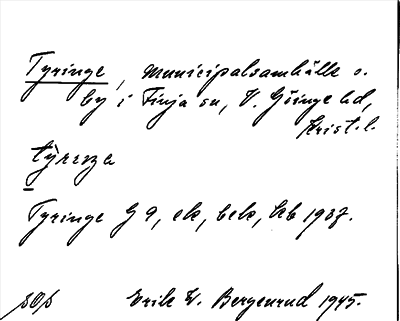 Tyringe, municipalsamhälle o.
by i Finja sn, V. Göinge hd,
Krist. l.
Tyringe G 9, ek, bek, kb 1937.
Erik W. Bergenrud 1945.